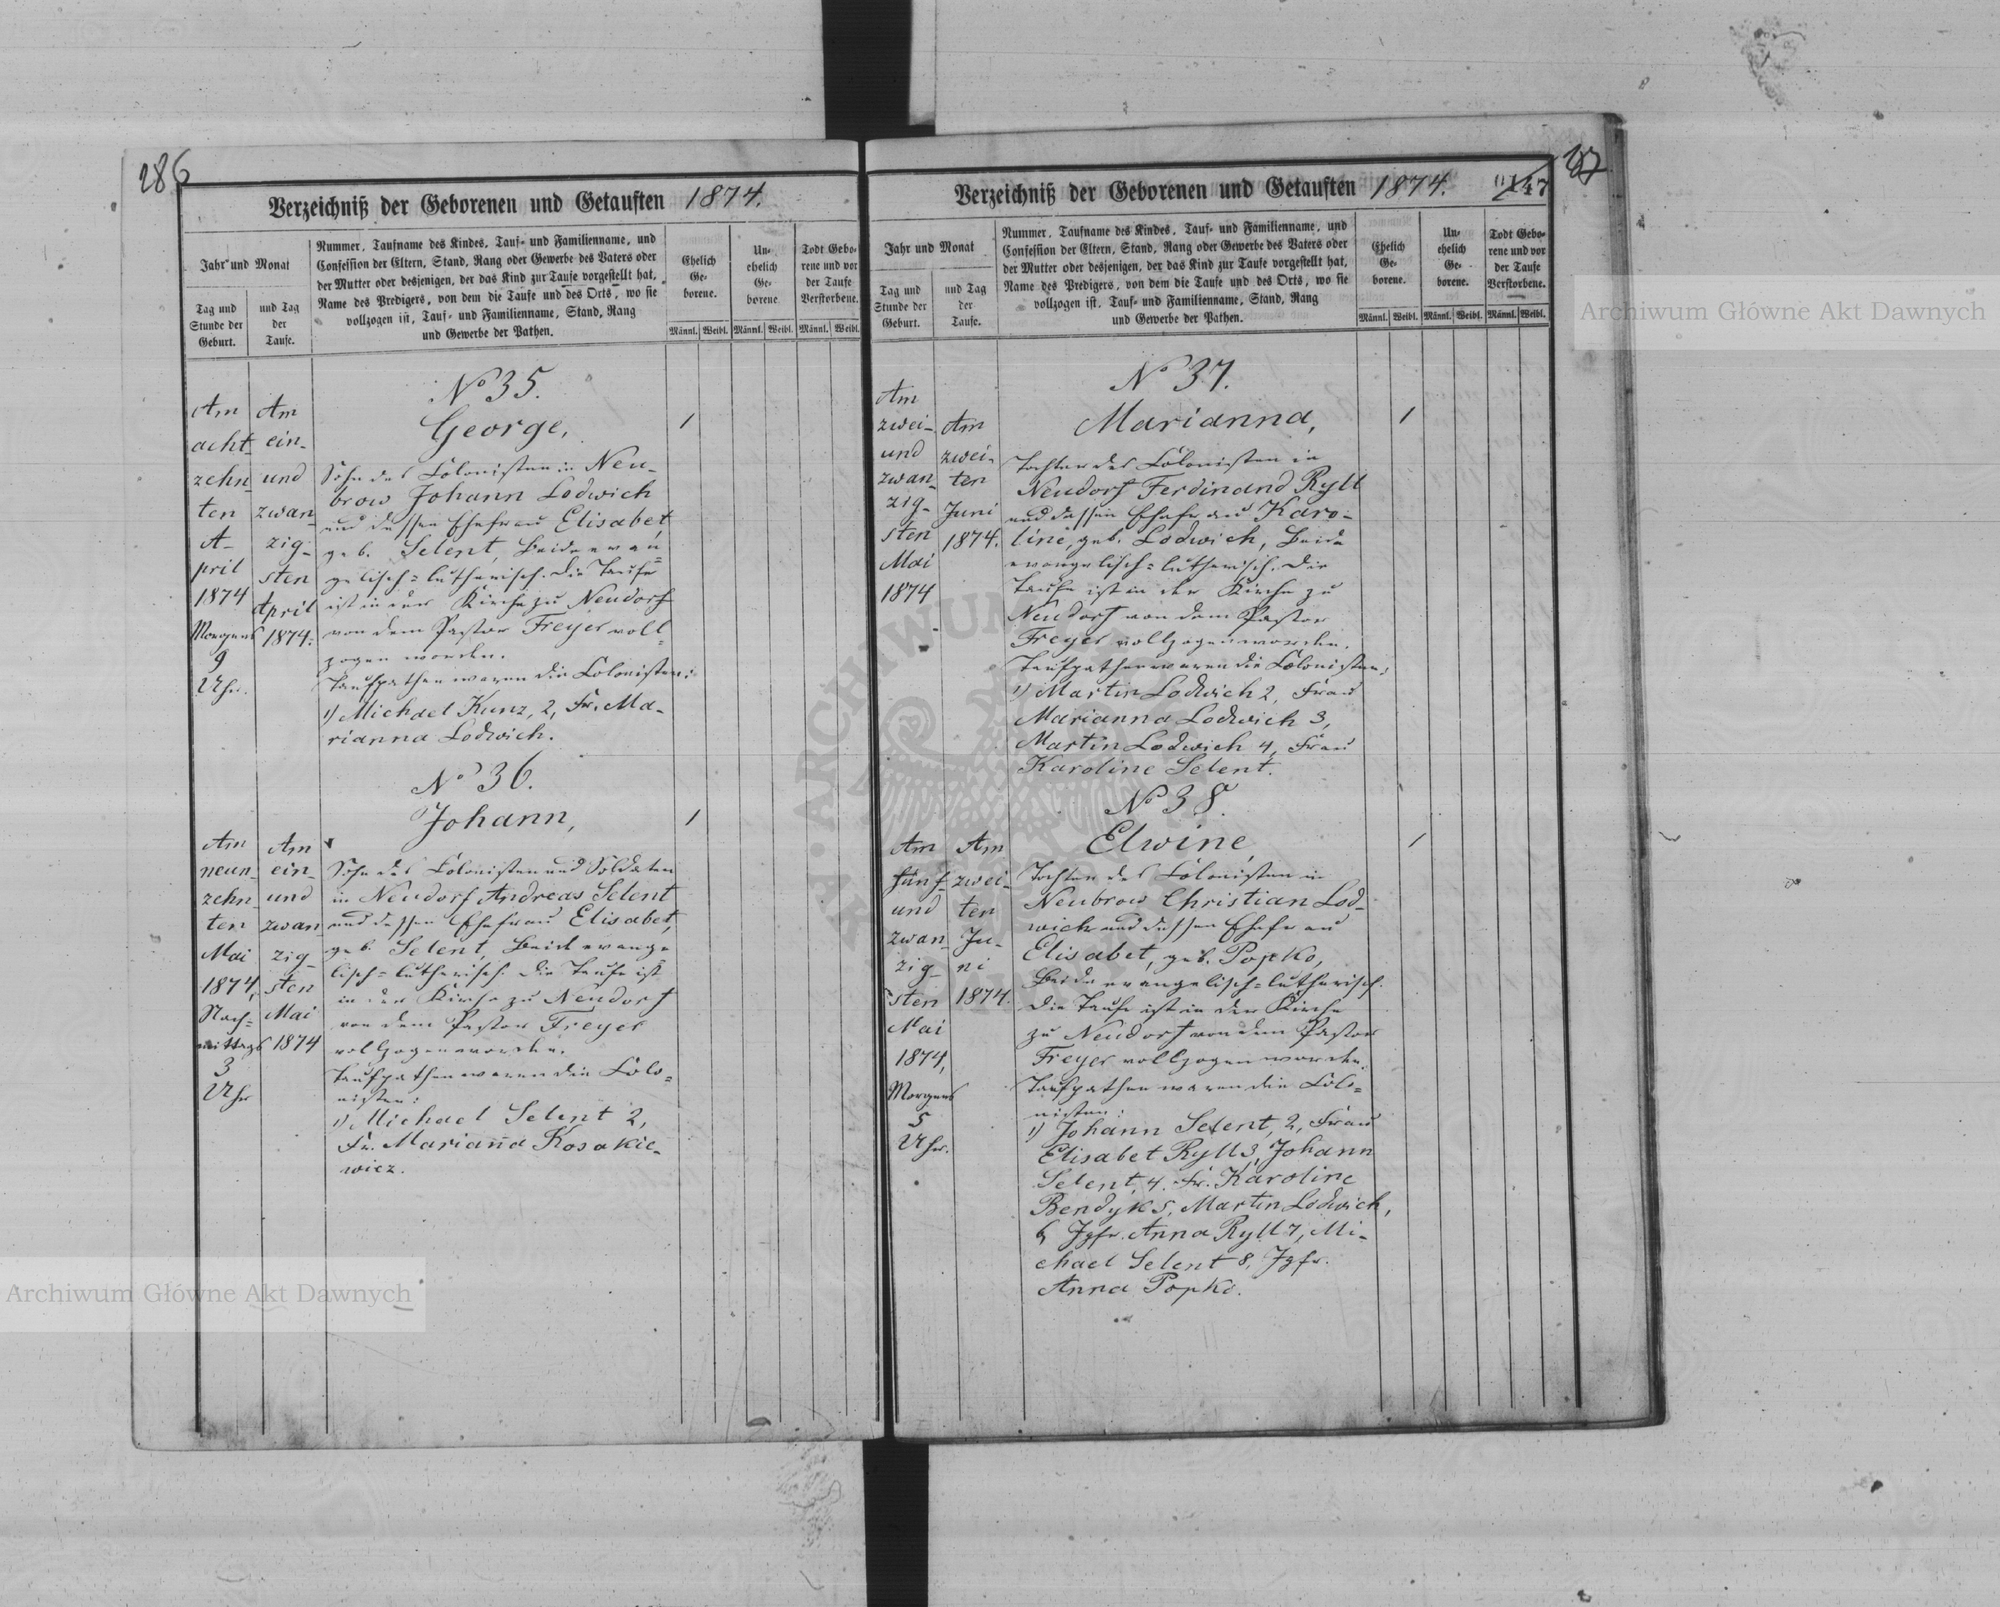 286
Verzeichniß der Geborenen und Getauften 1874.
Jahr und Monat
Tag und Stunde der Geburt.
und Tag der Taufe.
Nummer, Taufname des Kindes, Tauf- und Familienname, und
Confession der Eltern, Stand, Rang oder Gewerbe des Vaters oder
der Mutter oder desjenigen, der das Kind zur Taufe vorgestellt hat,
Name des Predigers, von dem die Taufe und des Orts, wo sie
vollzogen ist, Tauf- und Familienname, Stand, Rang
und Gewerbe der Pathen.
Ehelich Ge-borene.
Un-ehelich Ge-borene
Todt Gebo-rene und vor der Taufe Verstorbene.
Männl. Weibl. Männl. Weibl. Männl. Weibl.
Am
acht-
zehn-
ten
A-
pril
1874
Morgens
9
Uhr.
Am
ein-
und
zwan-
zig-
sten
April
1874.
No 35.
George,
1
Sohn des Colonisten in Neu-
brow Johann Lodwich
und dessen Ehefrau Elisabet,
geb. Selent, Beide evan-
gelisch-lutherisch. Die Taufe
ist in der Kirche zu Neudorf
von dem Pastor Freyer voll-
zogen worden.
Taufpathen waren die Colonisten:
1) Michael Kunz, 2, Fr. Ma-
rianna Lodwich.
Am
neun-
zehn-
ten
Mai
1874,
Nach-
mittags
3
Uhr
Am
ein-
und
zwan-
zig-
sten
Mai
1874
No 36.
Johann,
1
Sohn des Colonisten und Soldaten
in Neudorf Andreas Selent
und dessen Ehefrau Elisabet,
geb. Selent, Beide evange-
lisch-lutherisch. Die Taufe ist
in der Kirche zu Neudorf
von dem Pastor Freyer
vollzogen worden.
Taufpathen waren die Colo-
nisten:
1) Michael Selent 2,
Fr. Marianna Kosakie-
wicz.
147
Verzeichniß der Geborenen und Getauften 1874.
Jahr und Monat
Tag und Stunde der Geburt.
und Tag der Taufe.
Nummer, Taufname des Kindes, Tauf- und Familienname, und
Confession der Eltern, Stand, Rang oder Gewerbe des Vaters oder
der Mutter oder desjenigen, der das Kind zur Taufe vorgestellt hat,
Name des Predigers, von dem die Taufe und des Orts, wo sie
vollzogen ist, Tauf- und Familienname, Stand, Rang
und Gewerbe der Pathen.
Ehelich Ge-borene.
Un-ehelich Ge-borene.
Todt Gebo-rene und vor der Taufe Verstorbene.
Männl. Weibl. Männl. Weibl. Männl. Weibl.
Am
zwei-
und
zwan-
zig-
sten
Mai
1874
Am
zwei-
ten
Juni
1874.
No 37.
Marianna,
1
Tochter des Colonisten in
Neudorf Ferdinand Ryll
und dessen Ehefrau Karo-
line, geb. Lodwich, Beide
evangelisch-lutherisch. Die
Taufe ist in der Kirche zu
Neudorf von dem Pastor
Freyer vollzogen worden.
Taufpathen waren die Colonisten:
1) Martin Lodwich 2, Frau
Marianna Lodwich 3,
Martin Lodwich 4, Frau
Karoline Selent.
Am
fünf-
und
zwan-
zig-
sten
Mai
1874,
Morgens
5
Uhr.
Am
zwei-
ten
Ju-
ni
1874.
No 38.
Elwine,
1
Tochter des Colonisten in
Neubrow Christian Lod-
wich und dessen Ehefrau
Elisabet, geb. Popko,
Beide evangelisch-lutherisch.
Die Taufe ist in der Kirche
zu Neudorf von dem Pastor
Freyer vollzogen worden.
Taufpathen waren die Colo-
nisten:
1) Johann Selent, 2, Frau
Elisabet Ryll 3, Johann
Selent, 4. Fr. Karoline
Bendyk 5, Martin Lodwich,
6, Jgfr. Anna Ryll 7, Mi-
chael Selent 8, Jgfr.
Anna Popko.
Archiwum Główne Akt Dawnych
Archiwum Główne Akt Dawnych